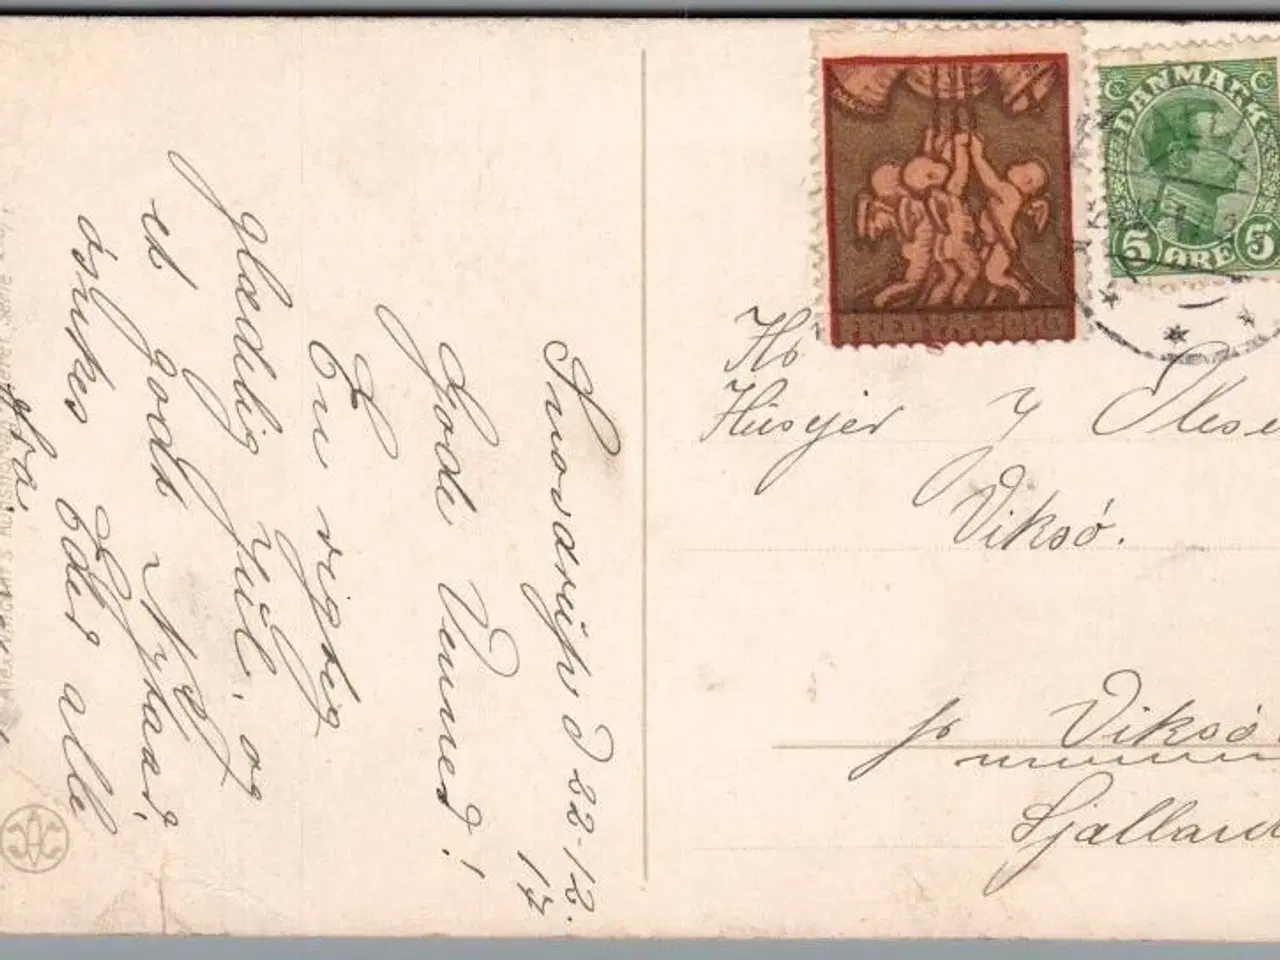 Snovdrup D 22-12.
17
Gode Venner!
En rigtig
glædelig Jul, og
et godt Nytaar,
önskes Eder alle
fra
FRED PAA JORD
DANMARK
5 ØRE 5
Hr
Husejer
Y Olse
Viksö.
pr Viksö
Sjælland